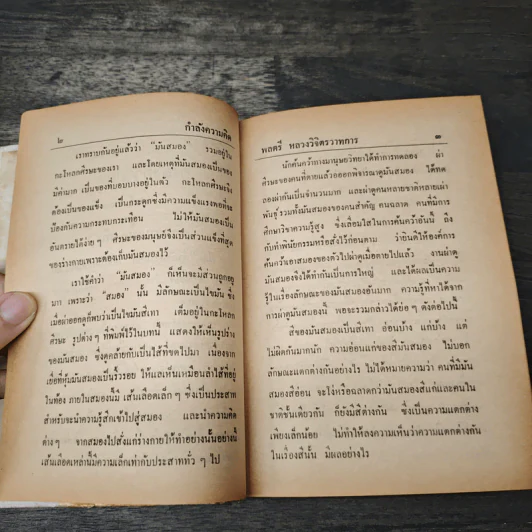 ๒ กำลังความคิด
เราทราบกันอยู่แล้วว่า "มันสมอง" รวมอยู่ใน
กะโหลกศีรษะของเรา และโดยเหตุที่มันสมองเป็นของ
มีค่ามาก เป็นของที่บอบบางอยู่ในตัว กะโหลกศีรษะจึง
ต้องเป็นของแข็ง เป็นกระดูกซึ่งมีความแข็งแรงพอที่จะ
ป้องกันความกระทบกระเทือน ไม่ให้มันสมองเป็น
อันตรายได้ง่าย ๆ ศีรษะของมนุษย์จึงเป็นส่วนแข็งที่สุด
ของร่างกายเพราะต้องเก็บมันสมองไว้
เราใช้คำว่า "มันสมอง" ก็เห็นจะมีส่วนถูกอยู่
มาก เพราะว่า "สมอง" นั้น มีลักษณะเป็นไขมัน ซึ่ง
เมื่อผ่าออกดูก็พบว่าเป็นไขมันสีเทา เต็มอยู่ในกะโหลก
ศีรษะ รูปต่าง ๆ ที่พิมพ์ไว้ในบทนี้ แสดงให้เห็นรูปร่าง
ของมันสมอง ซึ่งดูคล้ายกับเป็นไส้ที่ขดไปมา เนื่องจาก
เยื่อที่หุ้มมันสมองเป็นริ้วรอย ให้แลเห็นเหมือนลำไส้ที่อยู่
ในท้อง ภายในสมองนี้มี เส้นเลือดเล็ก ๆ ซึ่งเป็นประสาท
สำหรับจะนำความรู้สึกเข้าไปสู่สมอง และนำความคิด
ต่าง ๆ จากสมองไปสั่งแก่ร่างกายให้ทำอย่างนั้นอย่างนี้
เส้นเลือดเหล่านี้มีความเล็กเท่ากับประสาททั่ว ๆ ไป
พลตรี หลวงวิจิตรวาทการ ๓
นักค้นคว้าทางมานุษยวิทยาได้ทำการทดลอง ผ่า
ศีรษะของคนที่ตายแล้วออกพิจารณาดูมันสมอง ได้ทด
ลองผ่ากันเป็นจำนวนมาก และผ่าดูคนหลายชาติหลายเผ่า
พันธุ์ รวมทั้งมันสมองของคนสำคัญ คนฉลาด คนที่มีการ
ศึกษาวิชาความรู้สูง ซึ่งเลื่อมใสในการค้นคว้าอันนี้ ถึง
กับทำพินัยกรรมหรือสั่งไว้ก่อนตาย ว่ายินดีให้องค์การ
ค้นคว้าเอาสมองของตัวไปผ่าดูเมื่อตายไปแล้ว งานผ่าดู
มันสมองจึงได้ทำกันเป็นการใหญ่ และได้ผลเป็นความ
รู้ในเรื่องลักษณะของมันสมองอันมาก ความรู้ที่หาได้จาก
การผ่าดูมันสมองนี้ พอจะรวมกล่าวได้ย่อ ๆ ดังต่อไปนี้
สีของมันสมองเป็นสีเทา อ่อนบ้าง แก่บ้าง แต่
ไม่ผิดกันมากนัก ความอ่อนแก่ของสีมันสมอง ไม่บอก
ลักษณะแตกต่างกันอย่างไร ไม่ได้หมายความว่า คนที่มีมัน
สมองสีอ่อน จะโง่หรือฉลาดกว่ามันสมองสีแก่และคนใน
ชาติชั้นเดียวกัน ก็ยังมีสีต่างกัน ซึ่งเป็นความแตกต่าง
เพียงเล็กน้อย ไม่ทำให้ลงความเห็นว่าความแตกต่างกัน
ในเรื่องสีนั้น มีผลอย่างไร